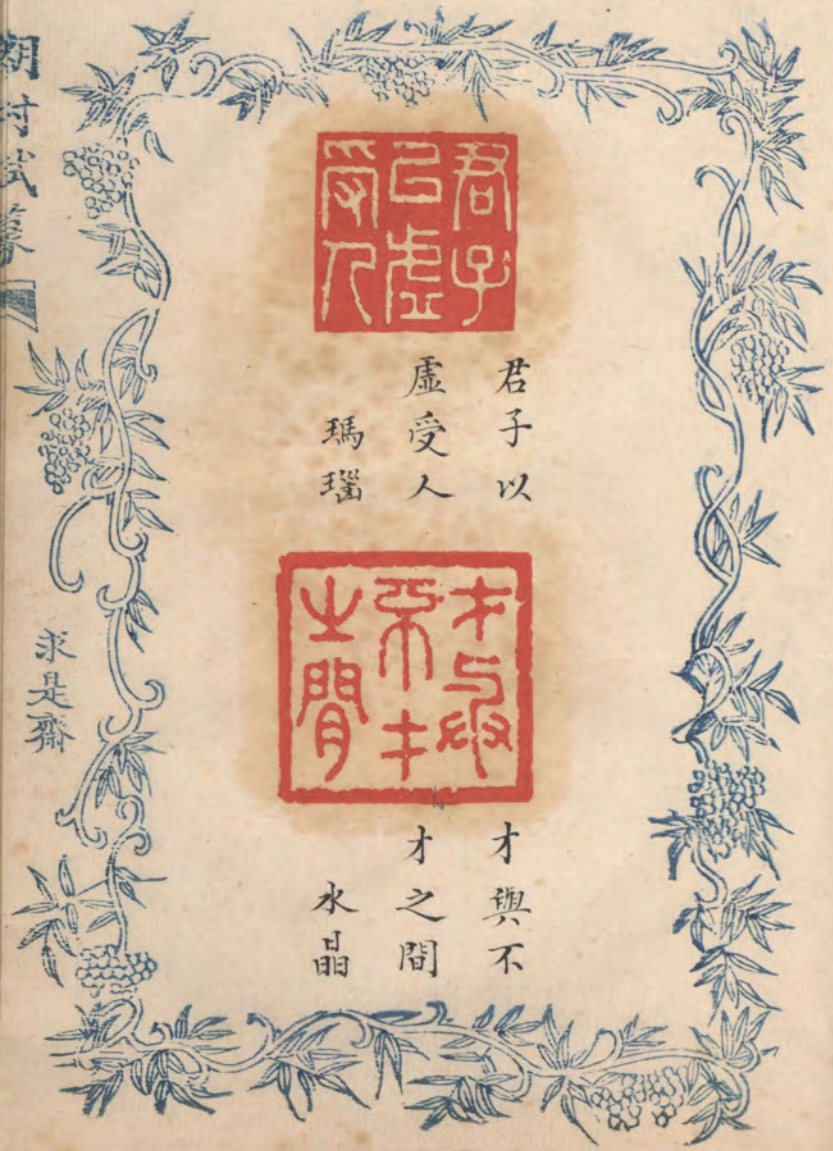 君子
㠯虛
受人
君子以
虛受人
瑪瑙
才與
不才
之間
才與不
才之間
水晶
村試篆
求是齋